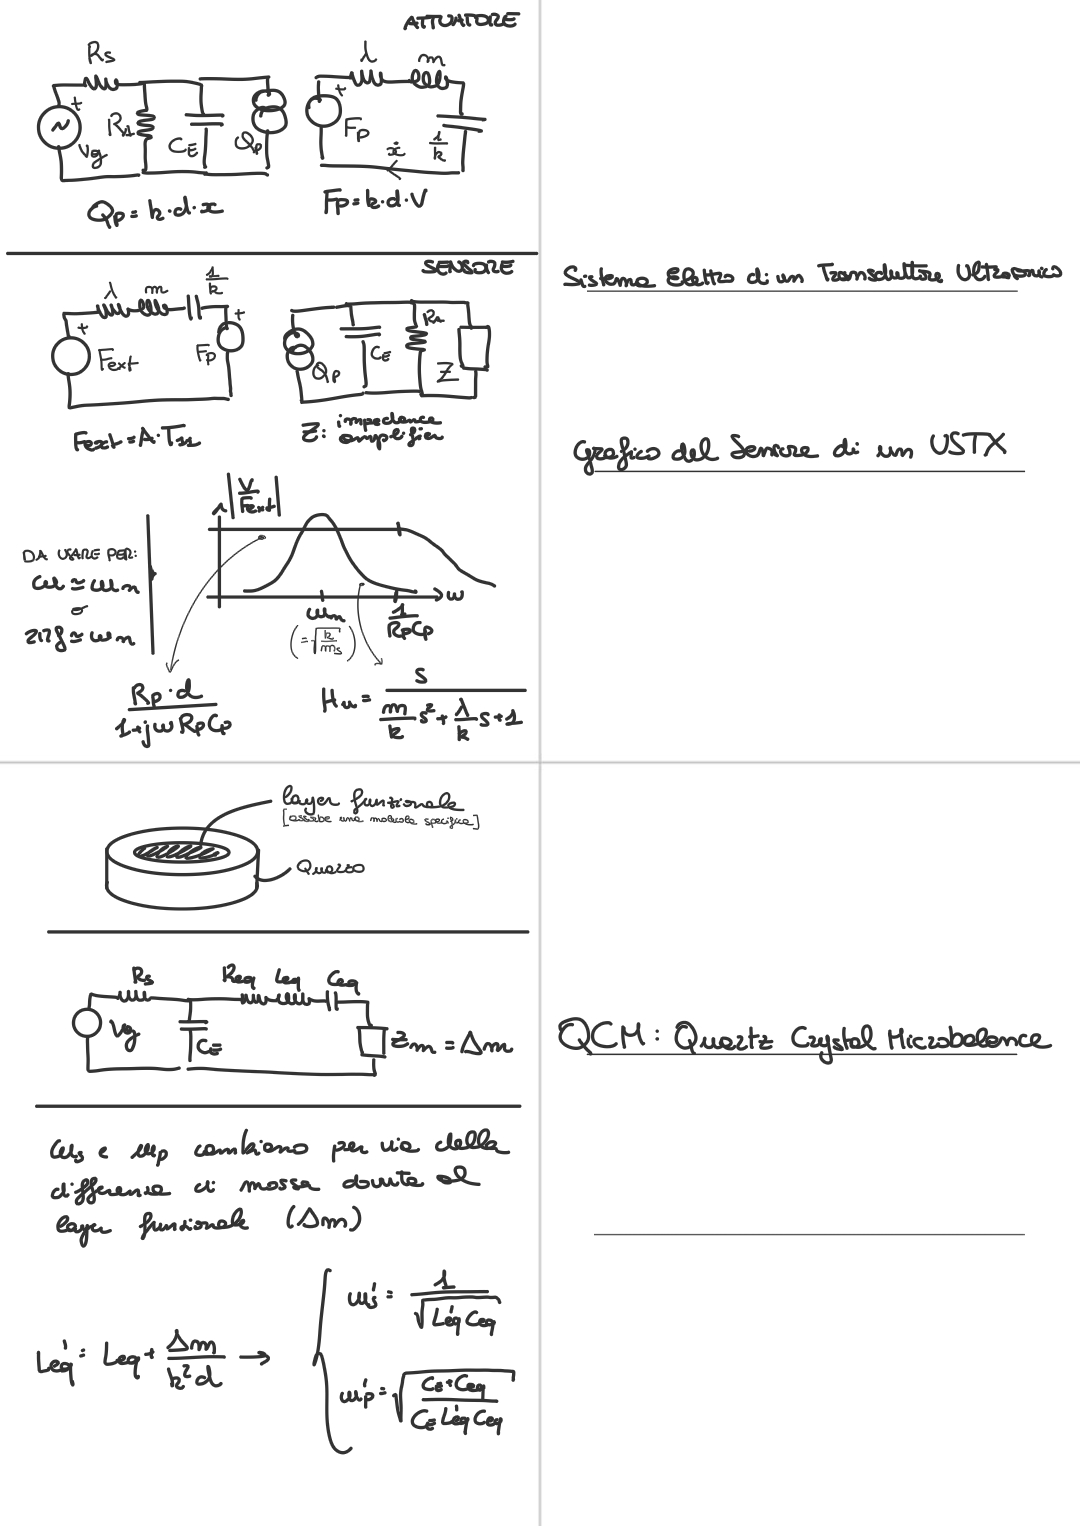 ATTUATORE
Rs
λ
m
+
+
R1
Vg
CE
Qp
Fp
ẋ
1/k
Qp = k·d·x
Fp = k·d·V
SENSORE
λ
m
1/k
+
+
Fext
Fp
Qp
CE
R1
Z
Fext = A·T11
Z: impedance
amplifier
Sistema Elettro di un Transduttore Ultrasonico
Grafico del Sensore di un USTX
|V/Fext|
DA USARE PER:
ω ≃ ωn
o
2πf ≃ ωn
ω
ωn
1/RpCp
Rp·d/1+jωRpCp
Hu = s/(m/k s² + λ/k s + 1)
layer funzionale
[assorbe una molecola specifica]
Quarzo
Rs
Req
Leq
Ceq
Vg
CE
Zm = Δm
QCM: Quartz Crystal Microbalance
ωs e ωp cambiano per via della
differenza di massa dovuta al
layer funzionale (Δm)
Leq' = Leq + Δm/k²d →
ωs' = 1/√Leq' Ceq
ωp' = √(CE+Ceq/CE Leq' Ceq)